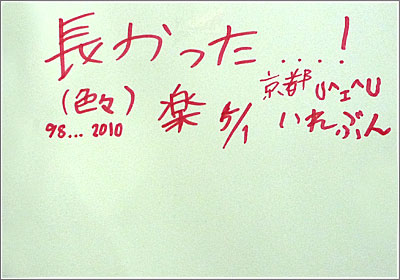 長かった....!
(色々) 楽 5/1 京都
98...2010 いれぶん